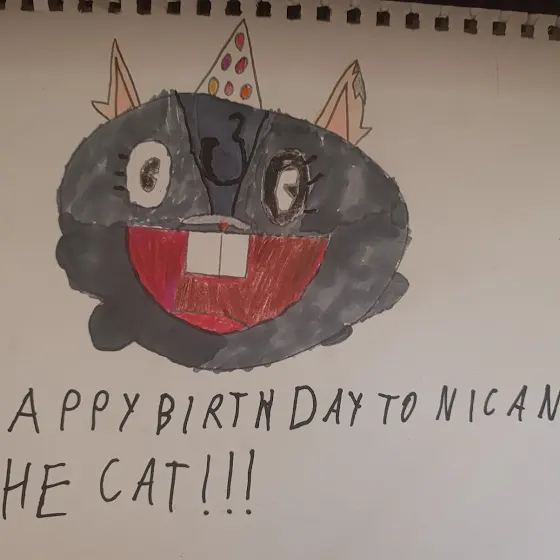 APPY BIRTHDAY TO NICAN
HE CAT!!!